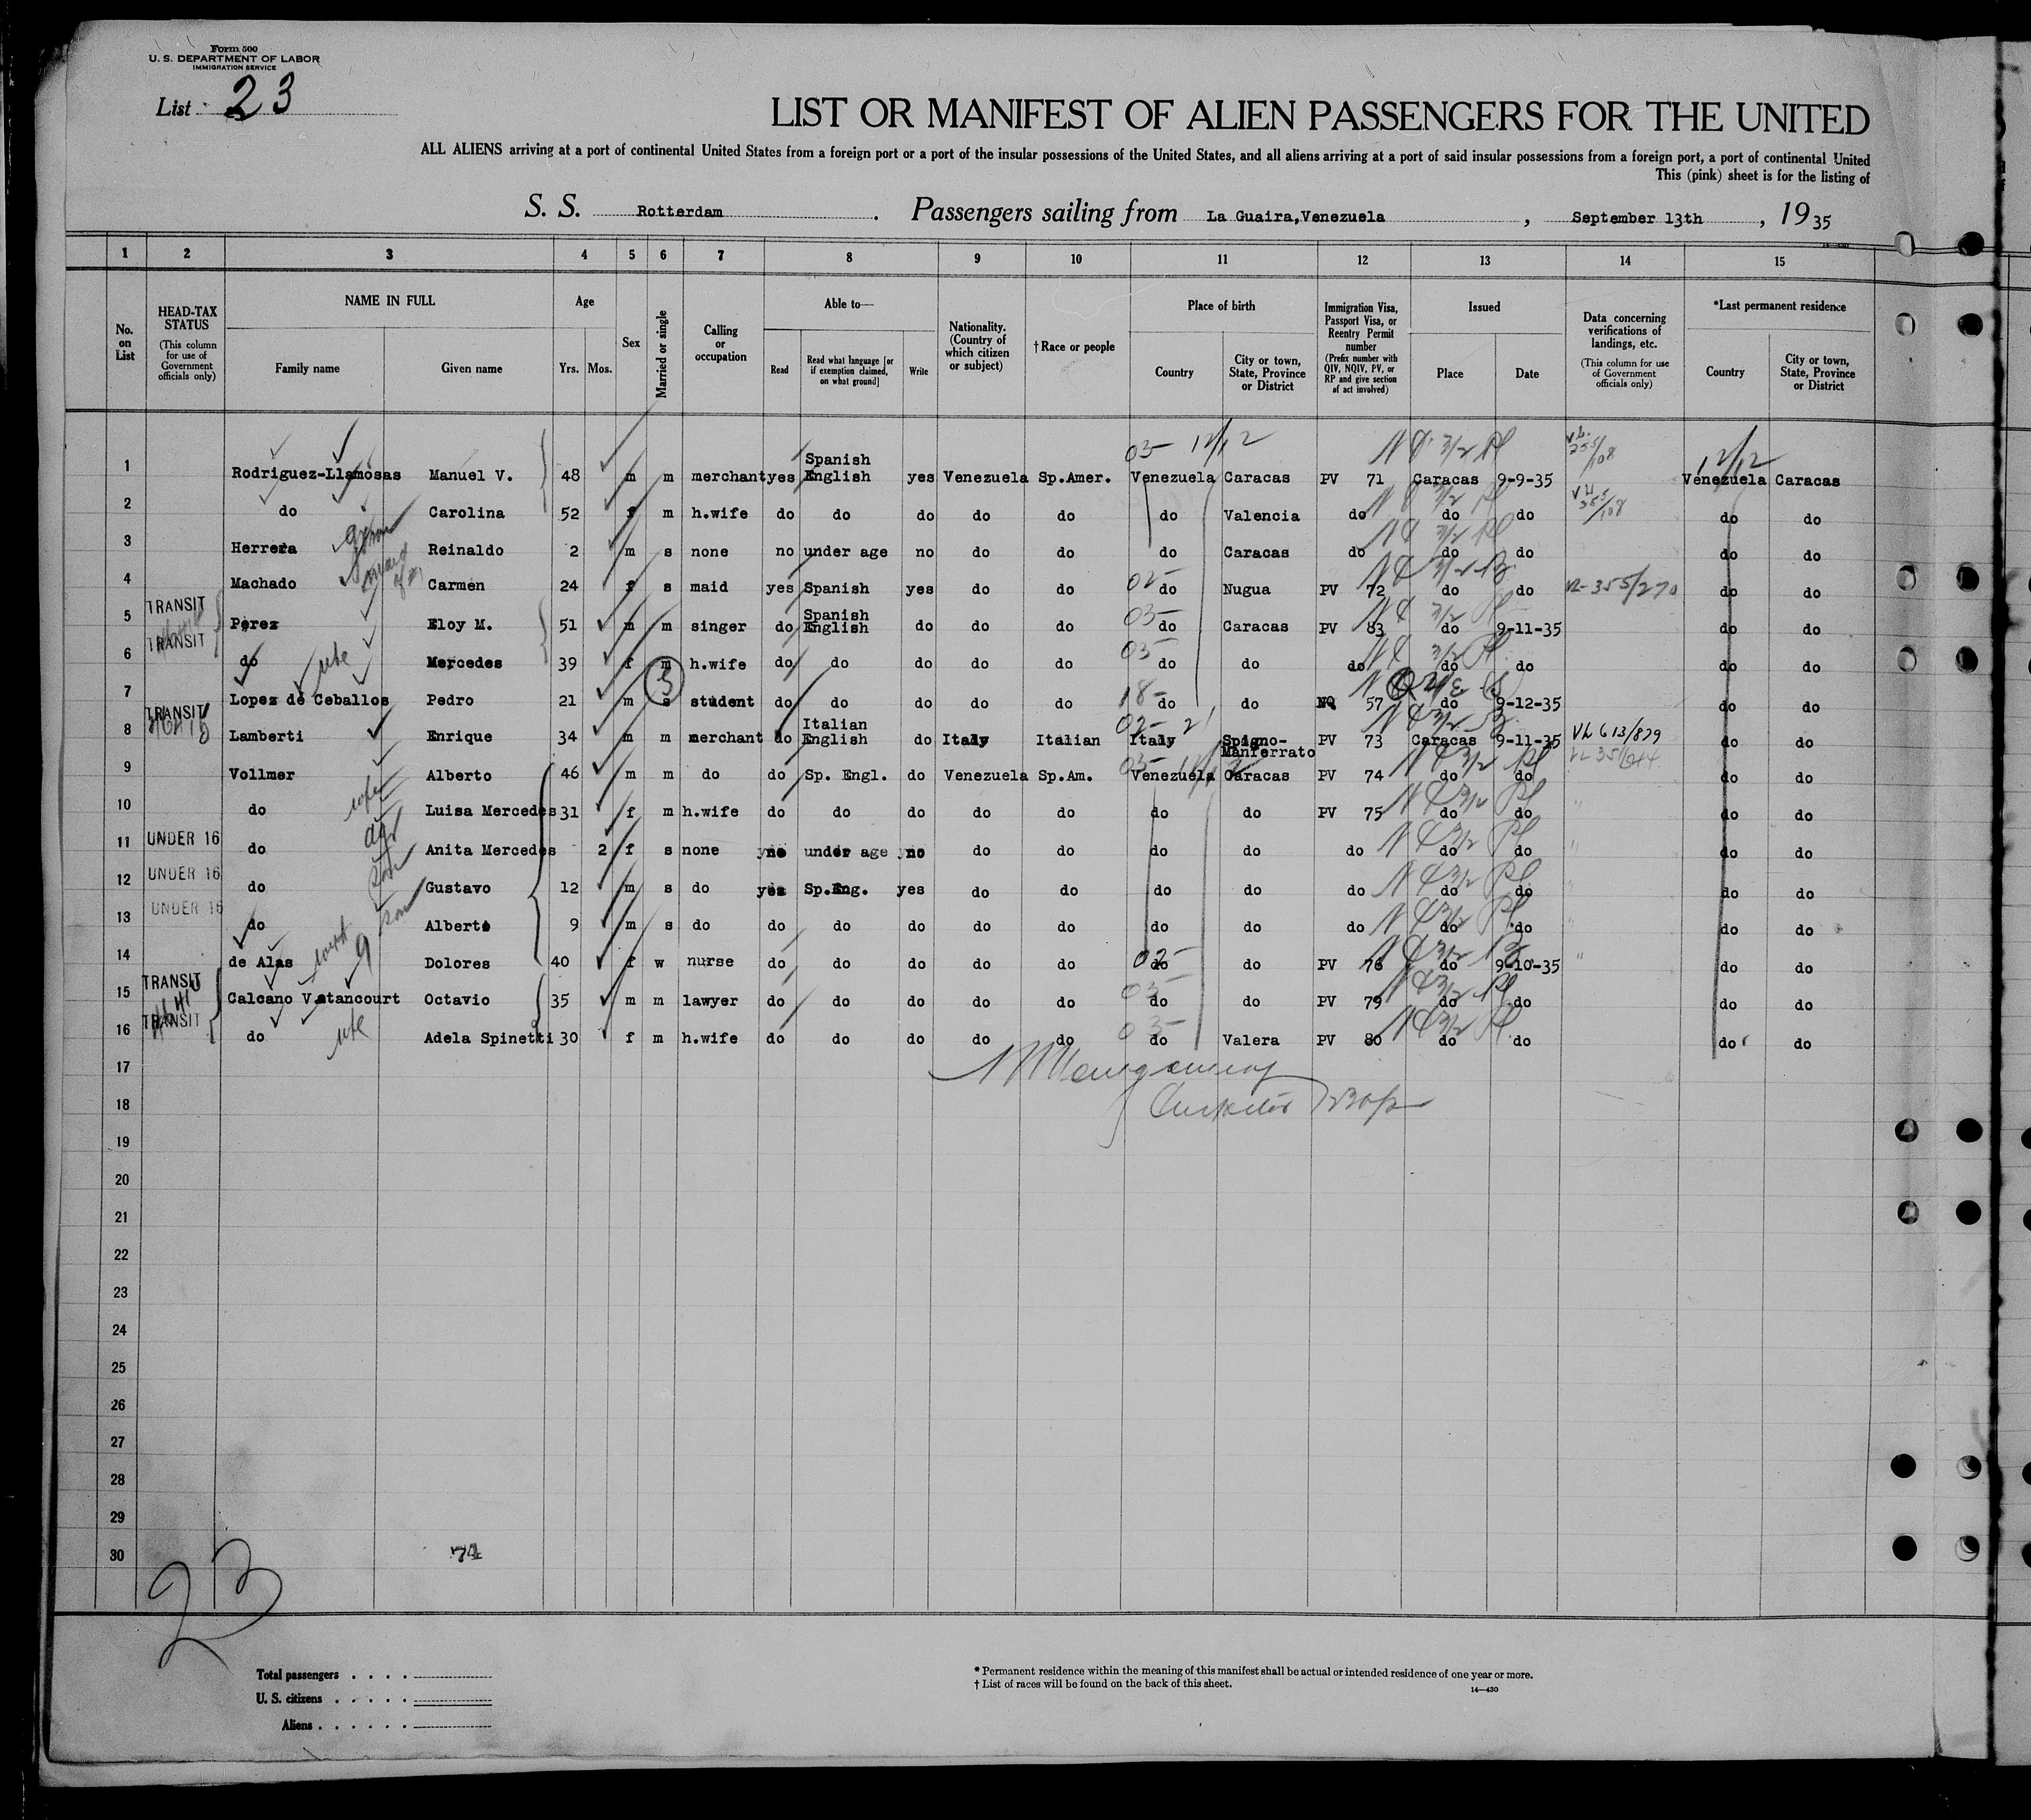 Form 500
U. S. DEPARTMENT OF LABOR
IMMIGRATION SERVICE
List 23
LIST OR MANIFEST OF ALIEN PASSENGERS FOR THE UNITED
ALL ALIENS arriving at a port of continental United States from a foreign port or a port of the insular possessions of the United States, and all aliens arriving at a port of said insular possessions from a foreign port, a port of continental United
This (pink) sheet is for the listing of
S. S. Rotterdam. Passengers sailing from La Guaira,Venezuela, September 13th, 1935
1 2 3 4 5 6 7 8 9 10 11 12 13 14 15
No. on List
HEAD-TAX STATUS (This column for use of Government officials only)
NAME IN FULL Family name Given name
Age Yrs. Mos.
Sex
Married or single
Calling or occupation
Able to— Read Read what language [or if exemption claimed, on what ground] Write
Nationality. (Country of which citizen or subject)
†Race or people
Place of birth Country City or town, State, Province or District
Immigration Visa, Passport Visa, or Reentry Permit number (Prefix number with QIV, NQIV, PV, or RP and give section of act involved)
Issued Place Date
Data concerning verifications of landings, etc. (This column for use of Government officials only)
*Last permanent residence Country City or town, State, Province or District
1 Rodriguez-Llamosas Manuel V. 48 m m merchant yes Spanish English yes Venezuela Sp.Amer. Venezuela Caracas PV 71 Caracas 9-9-35 Venezuela Caracas
2 do Carolina 52 f m h.wife do do do do do do Valencia do do do do do
3 Herrera Reinaldo 2 m s none no under age no do do do Caracas do do do do do
4 Machado Carmen 24 f s maid yes Spanish yes do do do Nugua PV 72 do do VL 355/270 do do
5 TRANSIT Perez Eloy M. 51 m m singer do Spanish English do do do do Caracas PV 83 do 9-11-35 do do
6 TRANSIT do wife Mercedes 39 f m h.wife do do do do do do do do do do do do
7 Lopez de Ceballos Pedro 21 m s student do do do do do do do NQ 57 do 9-12-35 do do
8 TRANSIT Lamberti Enrique 34 m m merchant do Italian English do Italy Italian Italy Spigno-Manferrato PV 73 Caracas 9-11-35 VL 613/879 do do
9 Vollmer Alberto 46 m m do do Sp. Engl. do Venezuela Sp.Am. Venezuela Caracas PV 74 do do do do
10 do wife Luisa Mercedes 31 f m h.wife do do do do do do do PV 75 do do do do
11 UNDER 16 do Anita Mercedes 2 f s none no under age no do do do do do do do do do
12 UNDER 16 do son Gustavo 12 m s do yes Sp.Eng. yes do do do do do do do do do
13 UNDER 16 do son Alberto 9 m s do do do do do do do do do do do do do
14 de Alas Dolores 40 f w nurse do do do do do do do PV 76 do 9-10-35 do do
15 TRANSIT Calcano Vetancourt Octavio 35 m m lawyer do do do do do do do PV 79 do do do do
16 TRANSIT do wife Adela Spinetti 30 f m h.wife do do do do do do Valera PV 80 do do do do
17
18
19
20
21
22
23
24
25
26
27
28
29
30 74
23
Total passengers
U. S. citizens
Aliens
* Permanent residence within the meaning of this manifest shall be actual or intended residence of one year or more.
† List of races will be found on the back of this sheet.
14—430